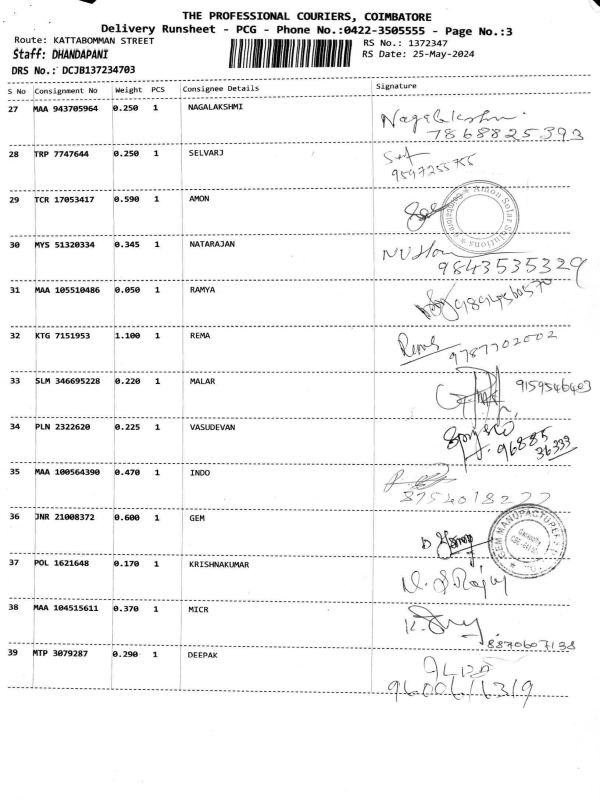 THE PROFESSIONAL COURIERS, COIMBATORE
Delivery Runsheet - PCG - Phone No.:0422-3505555 - Page No.:3
Route: KATTABOMMAN STREET RS No.: 1372347
Staff: DHANDAPANI RS Date: 25-May-2024
DRS No.: DCJB137234703
S No Consignment No Weight PCS Consignee Details Signature
27 MAA 943705964 0.250 1 NAGALAKSHMI Nagalakshmi
7868825393
28 TRP 7747644 0.250 1 SELVARJ
9597255755
29 TCR 17053417 0.590 1 AMON
Amon Solar Solutions
30 MYS 51320334 0.345 1 NATARAJAN
9843535329
31 MAA 105510486 0.050 1 RAMYA
32 KTG 7151953 1.100 1 REMA
9787702002
33 SLM 346695228 0.220 1 MALAR 9159546403
34 PLN 2322620 0.225 1 VASUDEVAN
96885
36333
35 MAA 100564390 0.470 1 INDO
8754018277
36 JNR 21008372 0.600 1 GEM
37 POL 1621648 0.170 1 KRISHNAKUMAR
38 MAA 104515611 0.370 1 MICR
8870607138
39 MTP 3079287 0.290 1 DEEPAK
9600616319